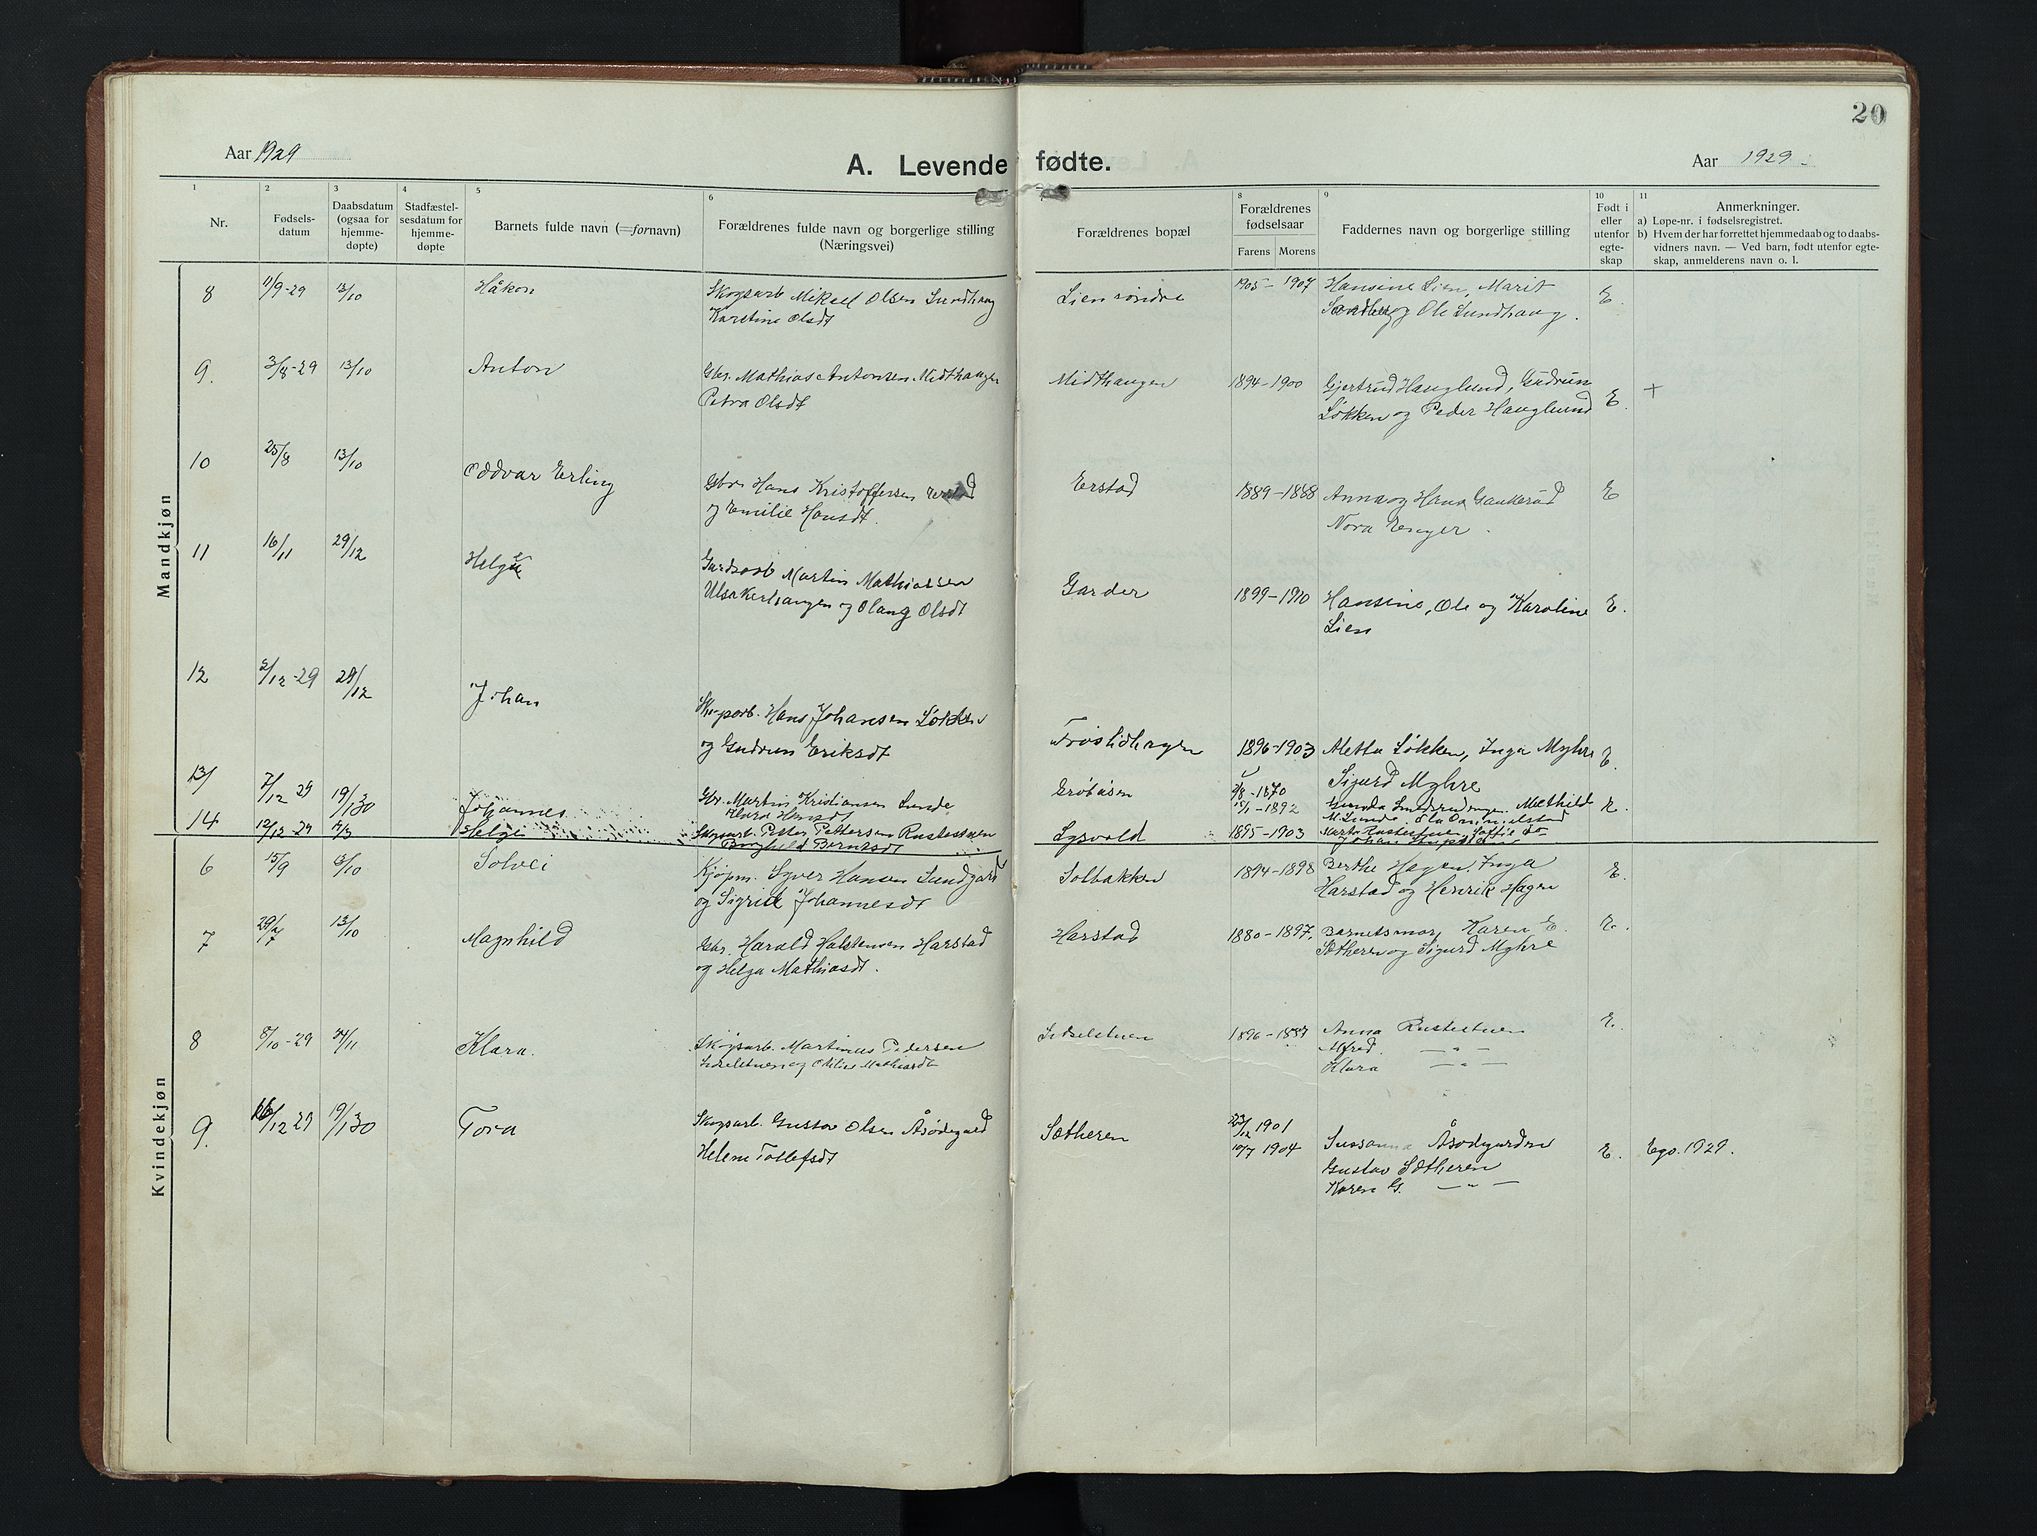 20
Aar 1929
A. Levende fødte.
Aar 1929.
1 2 3 4 5 6 8 9 10 11
Nr.
Fødsels-
datum
Daabsdatum
(ogsaa for
hjemme-
døpte)
Stadfæstel-
sesdatum for
hjemme-
døpte
Barnets fulde navn (=fornavn)
Forældrenes fulde navn og borgerlige stilling
(Næringsvei)
Forældrenes bopæl
Forældrenes
fødselsaar
Farens Morens
Faddernes navn og borgerlige stilling
Født i
eller
utenfor
egte-
skap
Anmerkninger.
a) Løpe-nr. i fødselsregistret.
b) Hvem der har forrettet hjemmedaab og to daabs-
vidners navn. — Ved barn, født utenfor egte-
skap, anmelderens navn o. l.
Mandkjøn
8 11/9-29 13/10 Håkon Skogsarb Mikael Olsen Sundhaug Lien søndre 1905-1907 Hansine Lien, Marit E.
Karstine Olsdt og Ole Sundhaug.
9. 3/8-29 13/10 Anton Gbr. Mathias Antonsen Midthaugen Midthaugen 1894-1900 Gjertrud Hauglund, Gudrun E. +
Petra Olsdt Løkken og Peder Hauglund
10 25/8 13/10 Oddvar Erling Gbr Hans Kristoffersen Erstad Erstad 1889-1888 Anna og Hans E
og Emilie Hansdt. Nora Enger.
11 16/11 29/12 Helge Gardsarb Martin Mathiassen Garder 1899-1910 Hansine, Ole og Karoline E.
Ulsakerhaugen og Olaug Olsdt Lien
12 2/12-29 29/12 Johan Skogsarb. Hans Johansen Løkken 1896-1903 Aletta Løkken, Inga Myhre E.
og Gudrun Eriksdt Sigurd Myhre
13 7/12 29 19/1 30 Johannes Gbr. Martin Kristiansen Lunde Grøtåsen 3/8-1870 Mathilde E.
Klara Hansdt 1892 M. Lunde
14 12/12-29 Helge Skogsarb Petter Pettersen Rustestuen Lysvold 1895-1903
Borghild Berntsdt Johan
Kvindekjøn
6 15/9 6/10 Solvei Kjøpm. Syver Hansen Sundgard Solbakken 1894-1898 Berthe Hagen, Inga E.
og Sigrid Johannesdt Harstad og Henrik Hagen
7 29/7 13/10 Magnhild Gbr. Harald Halstensen Harstad Harstad 1880-1897. Barnets mor, Karen E. E.
og Helga Mathiasdt. Sætheren og Sigurd Myhre
8 8/10-29 24/11 Klara. Skogsarb. Martinus Pedersen Sidselstuen 1896-1887 Anna Rustestuen E.
Sidselstuen og Otilie Mathiasdt Alfred. — " —
Klara — " —
9. 16/12 29 19/1 30 Tora Skogsarb. Gustav Olsen Åsødegård Sætheren 23/12 1901
Helene Tollefsdt 10/7 1904 Sussanna Åsødegården E. Ego. 1929.
Gustav Sætheren
Karen G. — " —